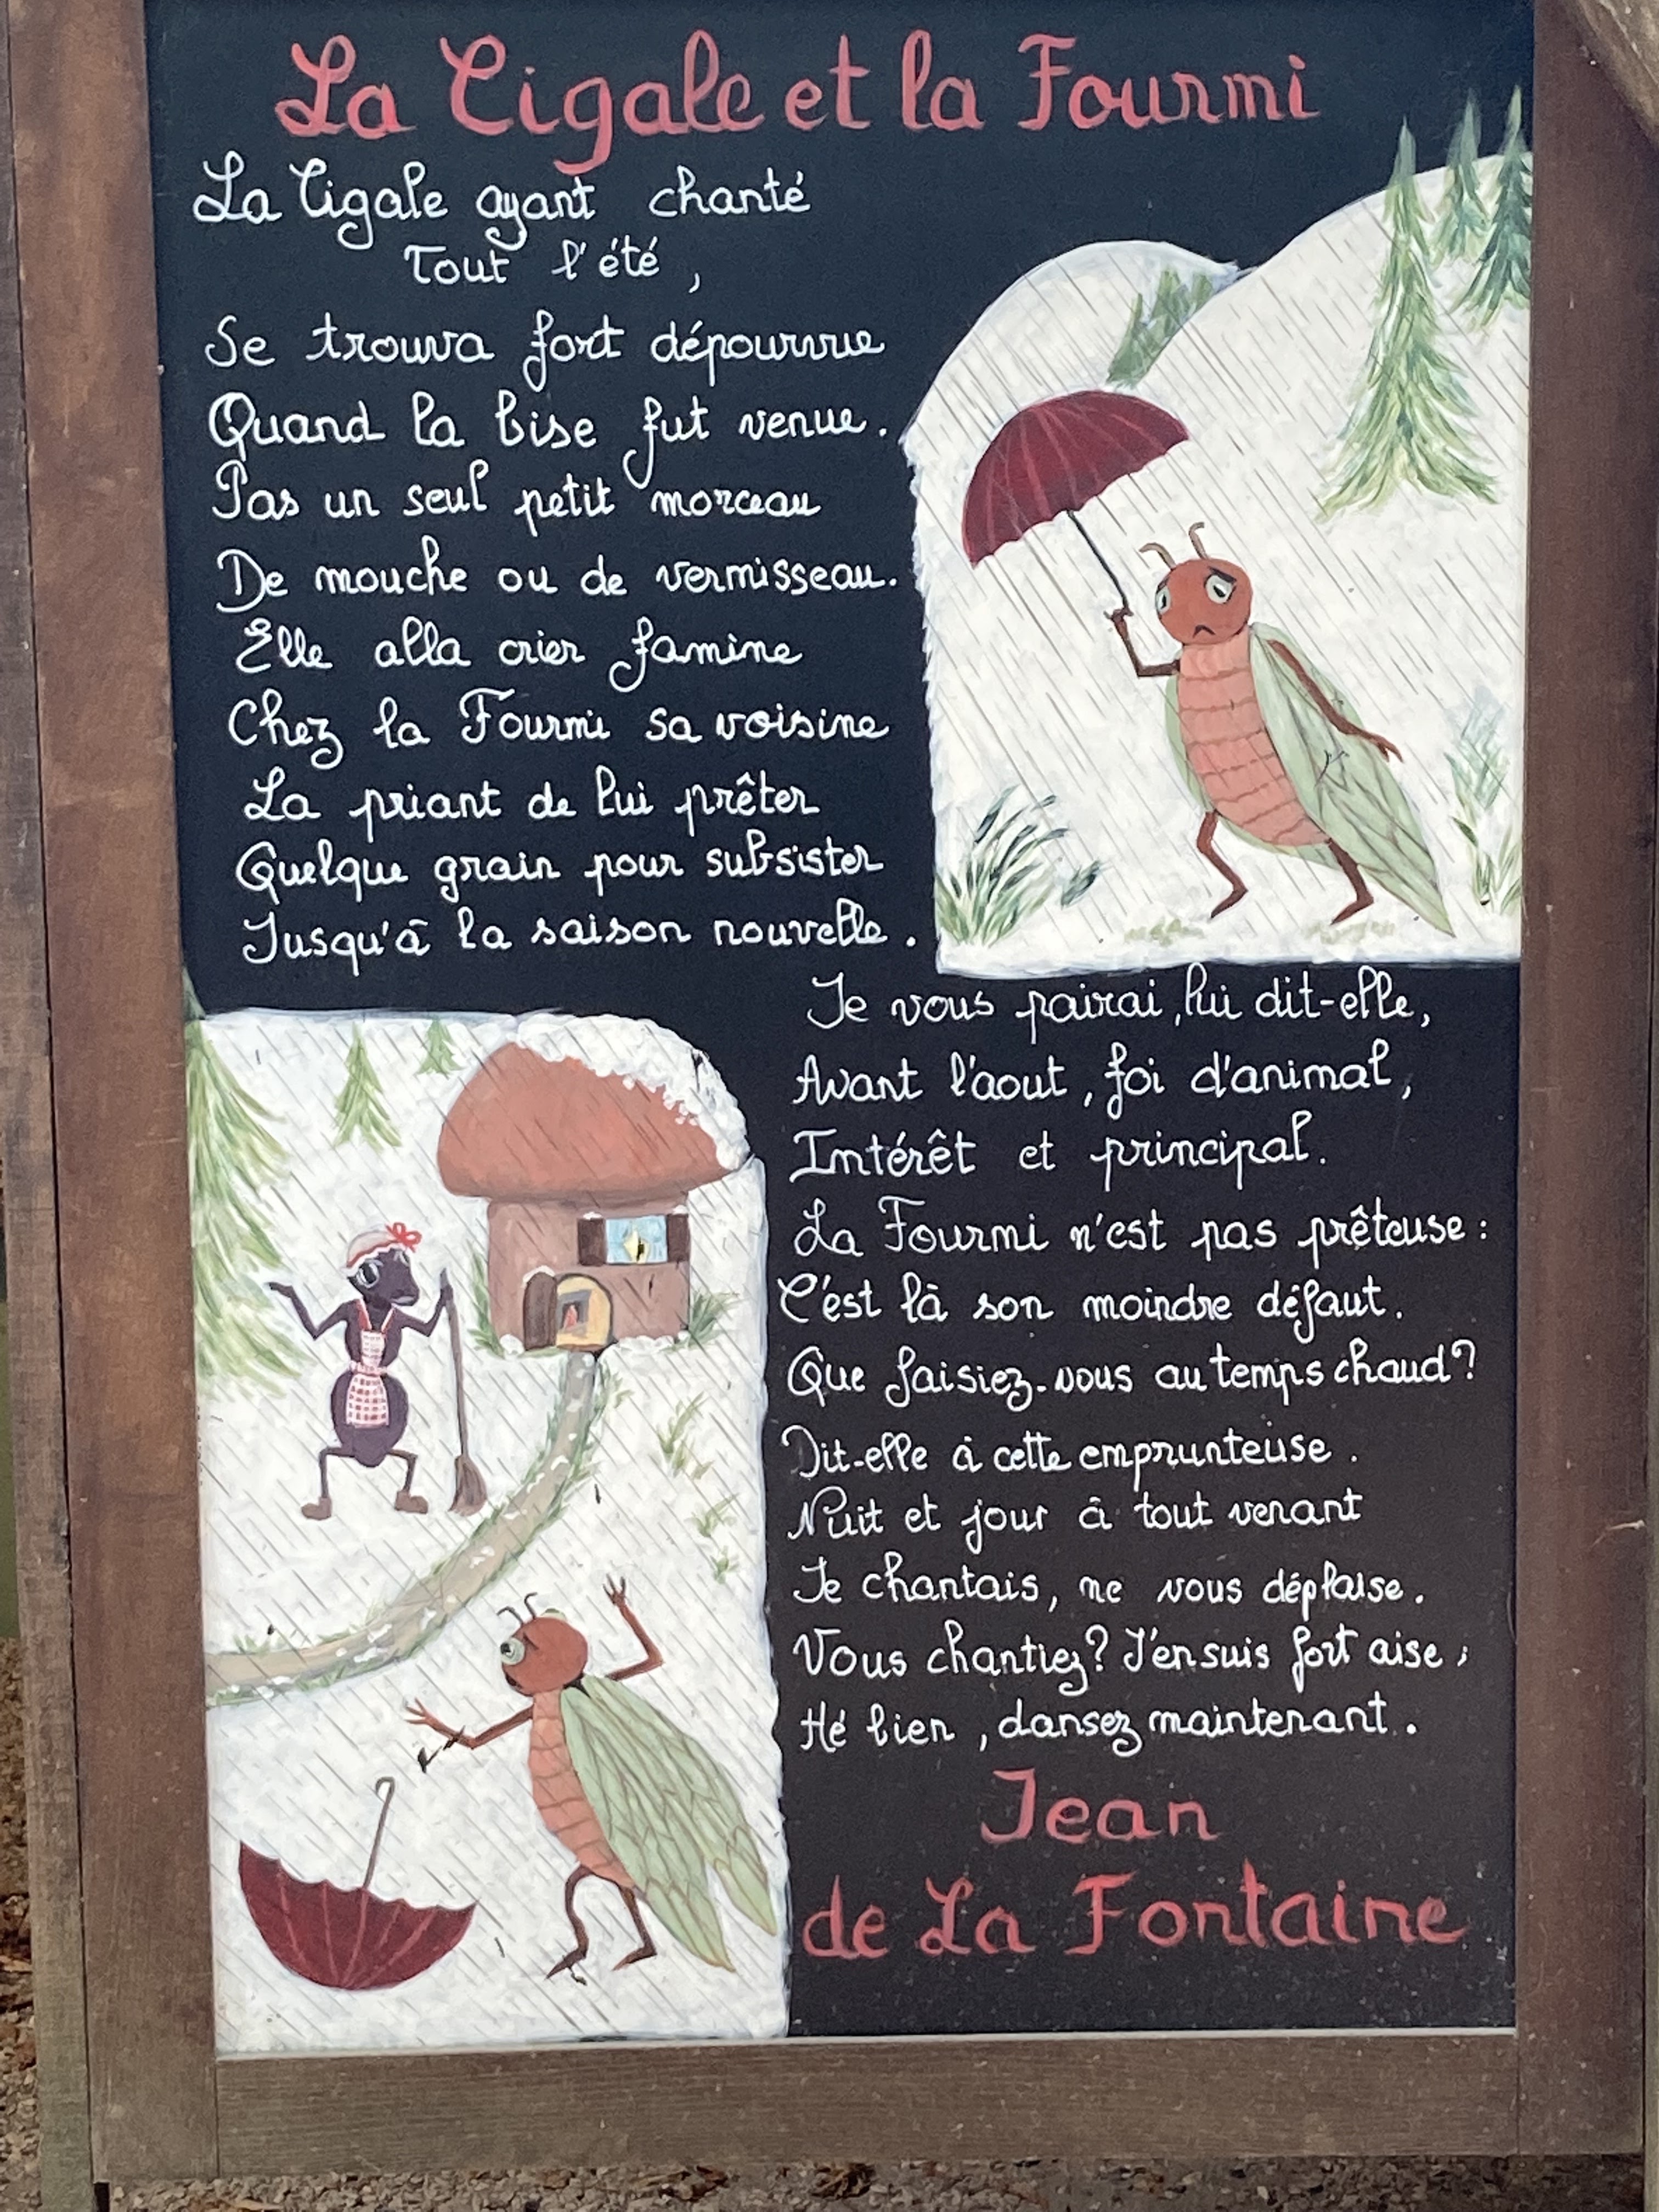 La Cigale et la Fourmi
La Cigale ayant chanté
Tout l'été,
Se trouva fort dépourvue
Quand la bise fut venue.
Pas un seul petit morceau
De mouche ou de vermisseau.
Elle alla crier famine
Chez la Fourmi sa voisine
La priant de lui prêter
Quelque grain pour subsister
Jusqu'à la saison nouvelle.
Je vous pairai, lui dit-elle,
Avant l'aout, foi d'animal,
Intérêt et principal.
La Fourmi n'est pas prêteuse :
C'est là son moindre défaut.
Que faisiez-vous au temps chaud ?
Dit-elle à cette emprunteuse.
Nuit et jour à tout venant
Je chantais, ne vous déplaise.
Vous chantiez ? J'en suis fort aise ;
Hé bien, dansez maintenant.
Jean
de La Fontaine